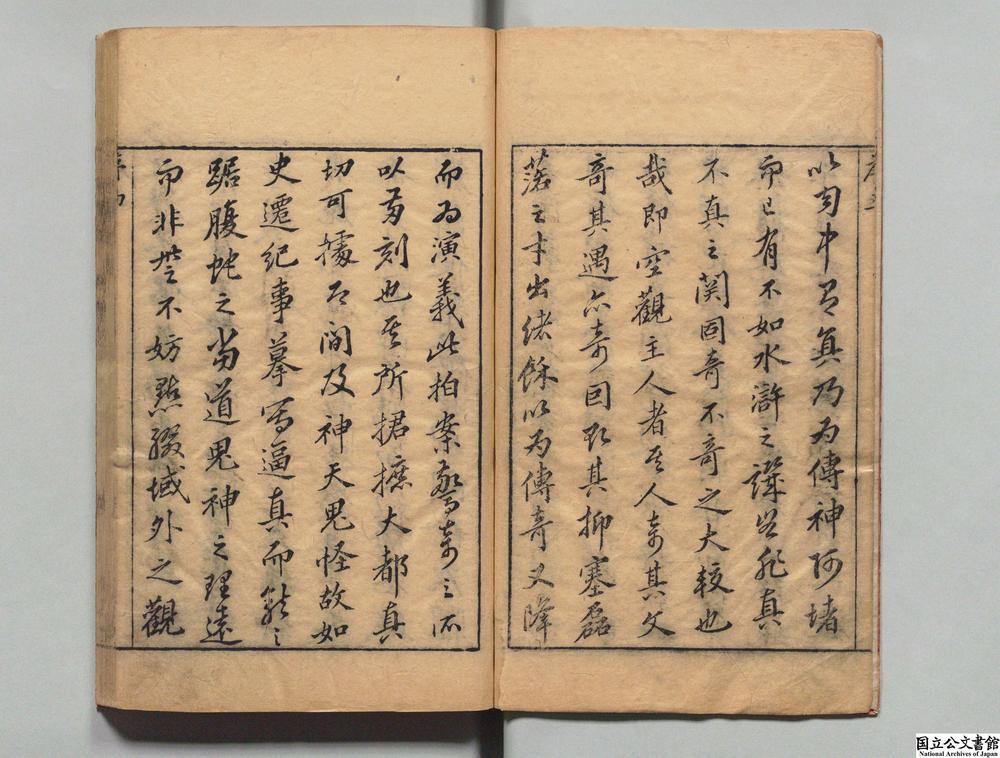 以幻中有真乃為傳神阿堵
而已有不如水滸之譏豈非真
不真之関固奇不奇之大較也
哉即空觀主人者其人奇其文
奇其遇亦奇因取其抑塞磊
落之才出緒餘以為傳奇又降
而為演義此拍案驚奇之所
以兩刻也其所捃摭大都真
切可據即間及神天鬼怪故如
史遷紀事摹寫逼真而能之
踞腹蛇之當道鬼神之理遠
而非無不妨點綴域外之觀
国立公文書館
National Archives of Japan